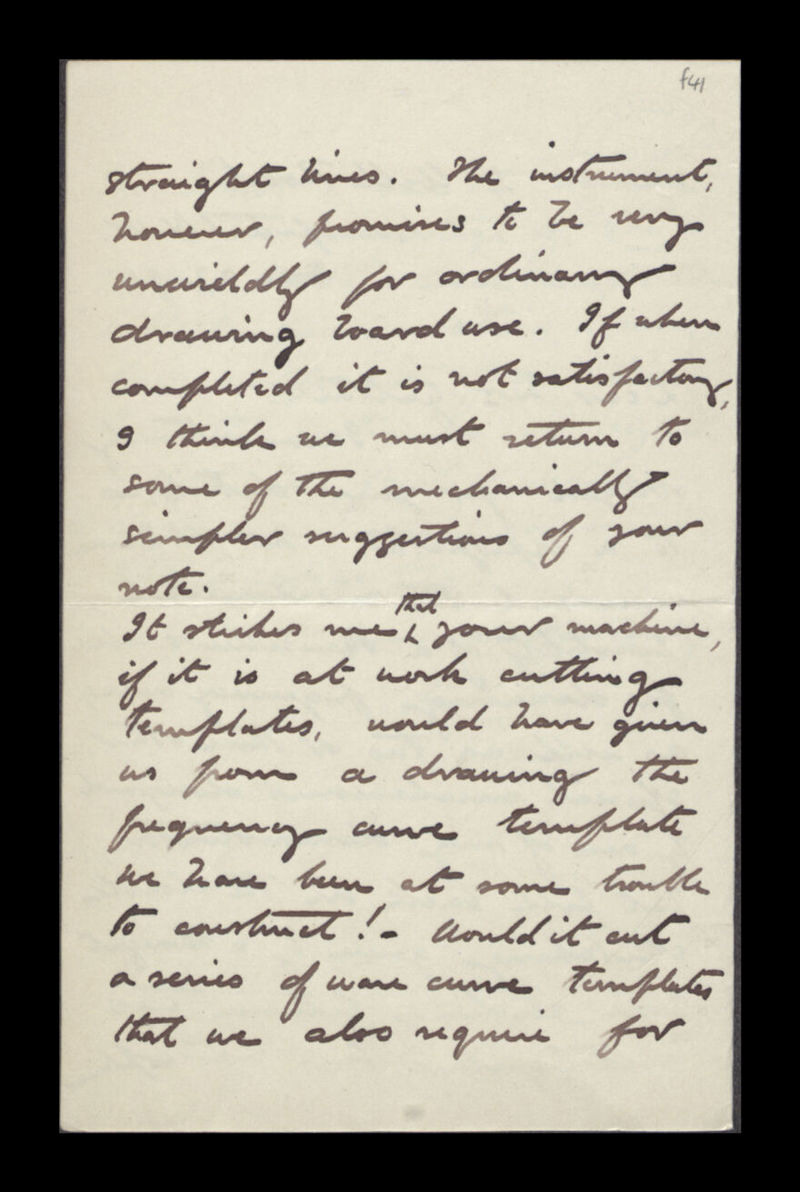 f41
straight lines. The instrument,
however, promises to be very
unwieldly for ordinary
drawing board use. If when
completed it is not satisfactory,
I think we must return to
some of the mechanically
simpler suggestions of your
note.
that
It strikes me your machine,
if it is at work cutting
templates, would have given
us from a drawing the
frequency curve template
we have been at some trouble
to construct! - Would it cut
a series of wave curve templates
that we also require for